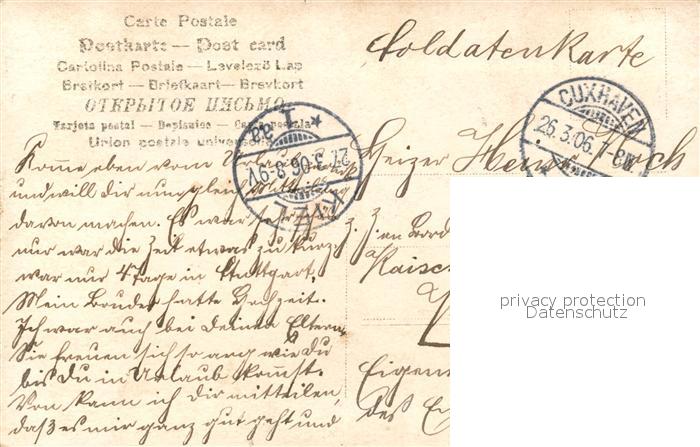 Carte Postale
Postkarte — Post card
Cartolina Postale — Levelező Lap
Brefkort — Briefkaart — Brevkort
ОТКРЫТОЕ ПИСЬМО
Tarjeta postal — Dopisnice — Carte postale
Union postale universelle
Soldatenkarte
CUXHAVEN
26.3.06. 7-8N.
KIEL
27.3.06. 8-9V.
Heizer Heinr.
Komme eben vom Urlaub
und will dir nun gleich
davon machen. Es war sehr
nur war die Zeit etwas zu kurz
war nur 4 Tage in Stuttgart,
Mein Bruder hatte Hochzeit.
Ich war auch bei deinen Eltern,
Sie freuen sich so arg wie Du
bis Du in Urlaub kommst.
Von kann ich dir mitteilen
daß es mir ganz gut geht und
z. Z. an Bord
Kaiser
Eigen
des E
privacy protection
Datenschutz